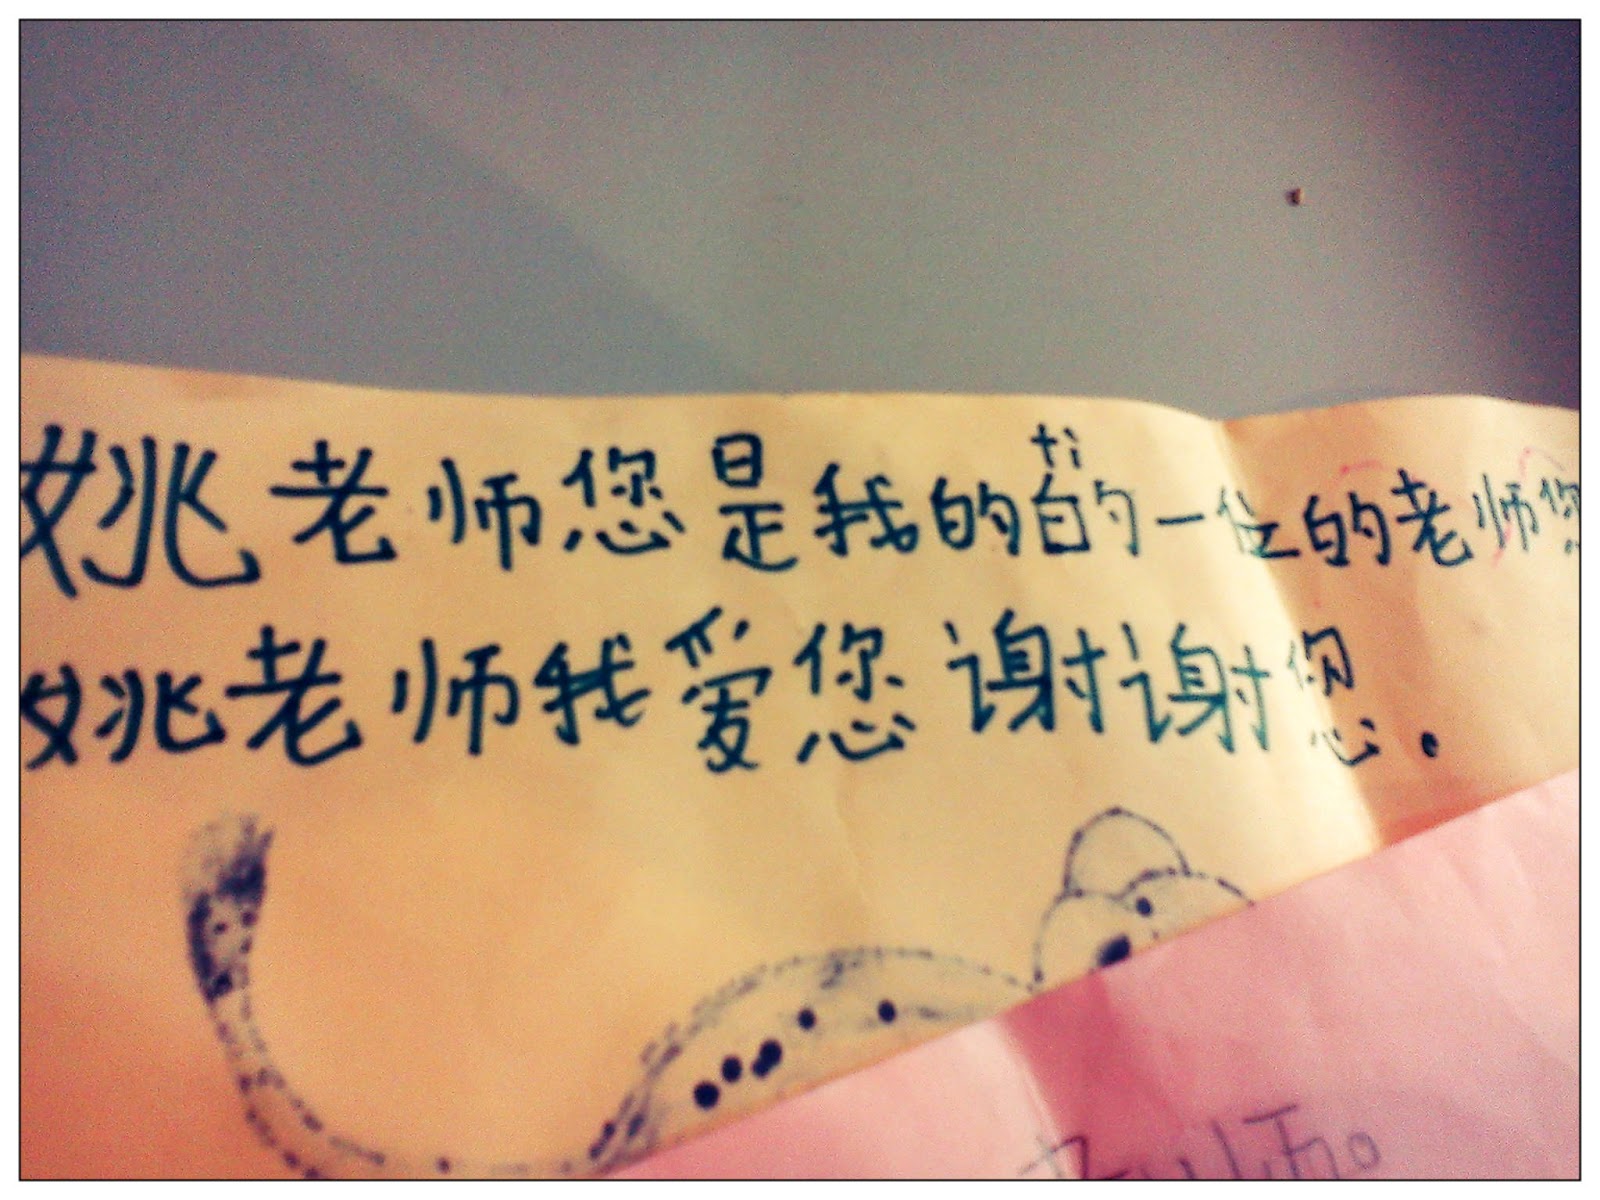 姚老师您是我的的一位的老师您
姚老师我爱您谢谢您.
老师